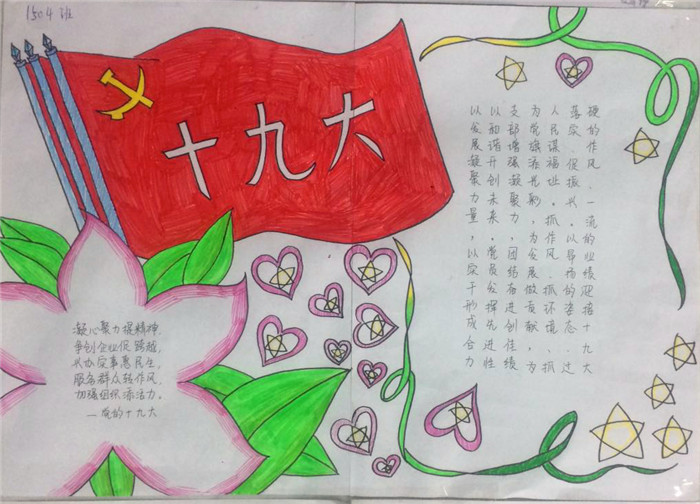 1504班
十九大
凝心聚力振精神,
争创企业促跨越,
兴办实事惠民生,
服务群众转作风,
加强组织添活力。
—党的十九大
以发展凝聚力量,以实干形成合力
以和谐开创未来。党员发挥先进性
支部增强凝聚力,团结奋进创佳绩
为党旗添光彩,为发展做贡献,为
人民谋福祉。抓作风、抓环境、抓
落实、促振兴。以昂扬的姿态、过
硬的作风、一流的业绩迎接十九大